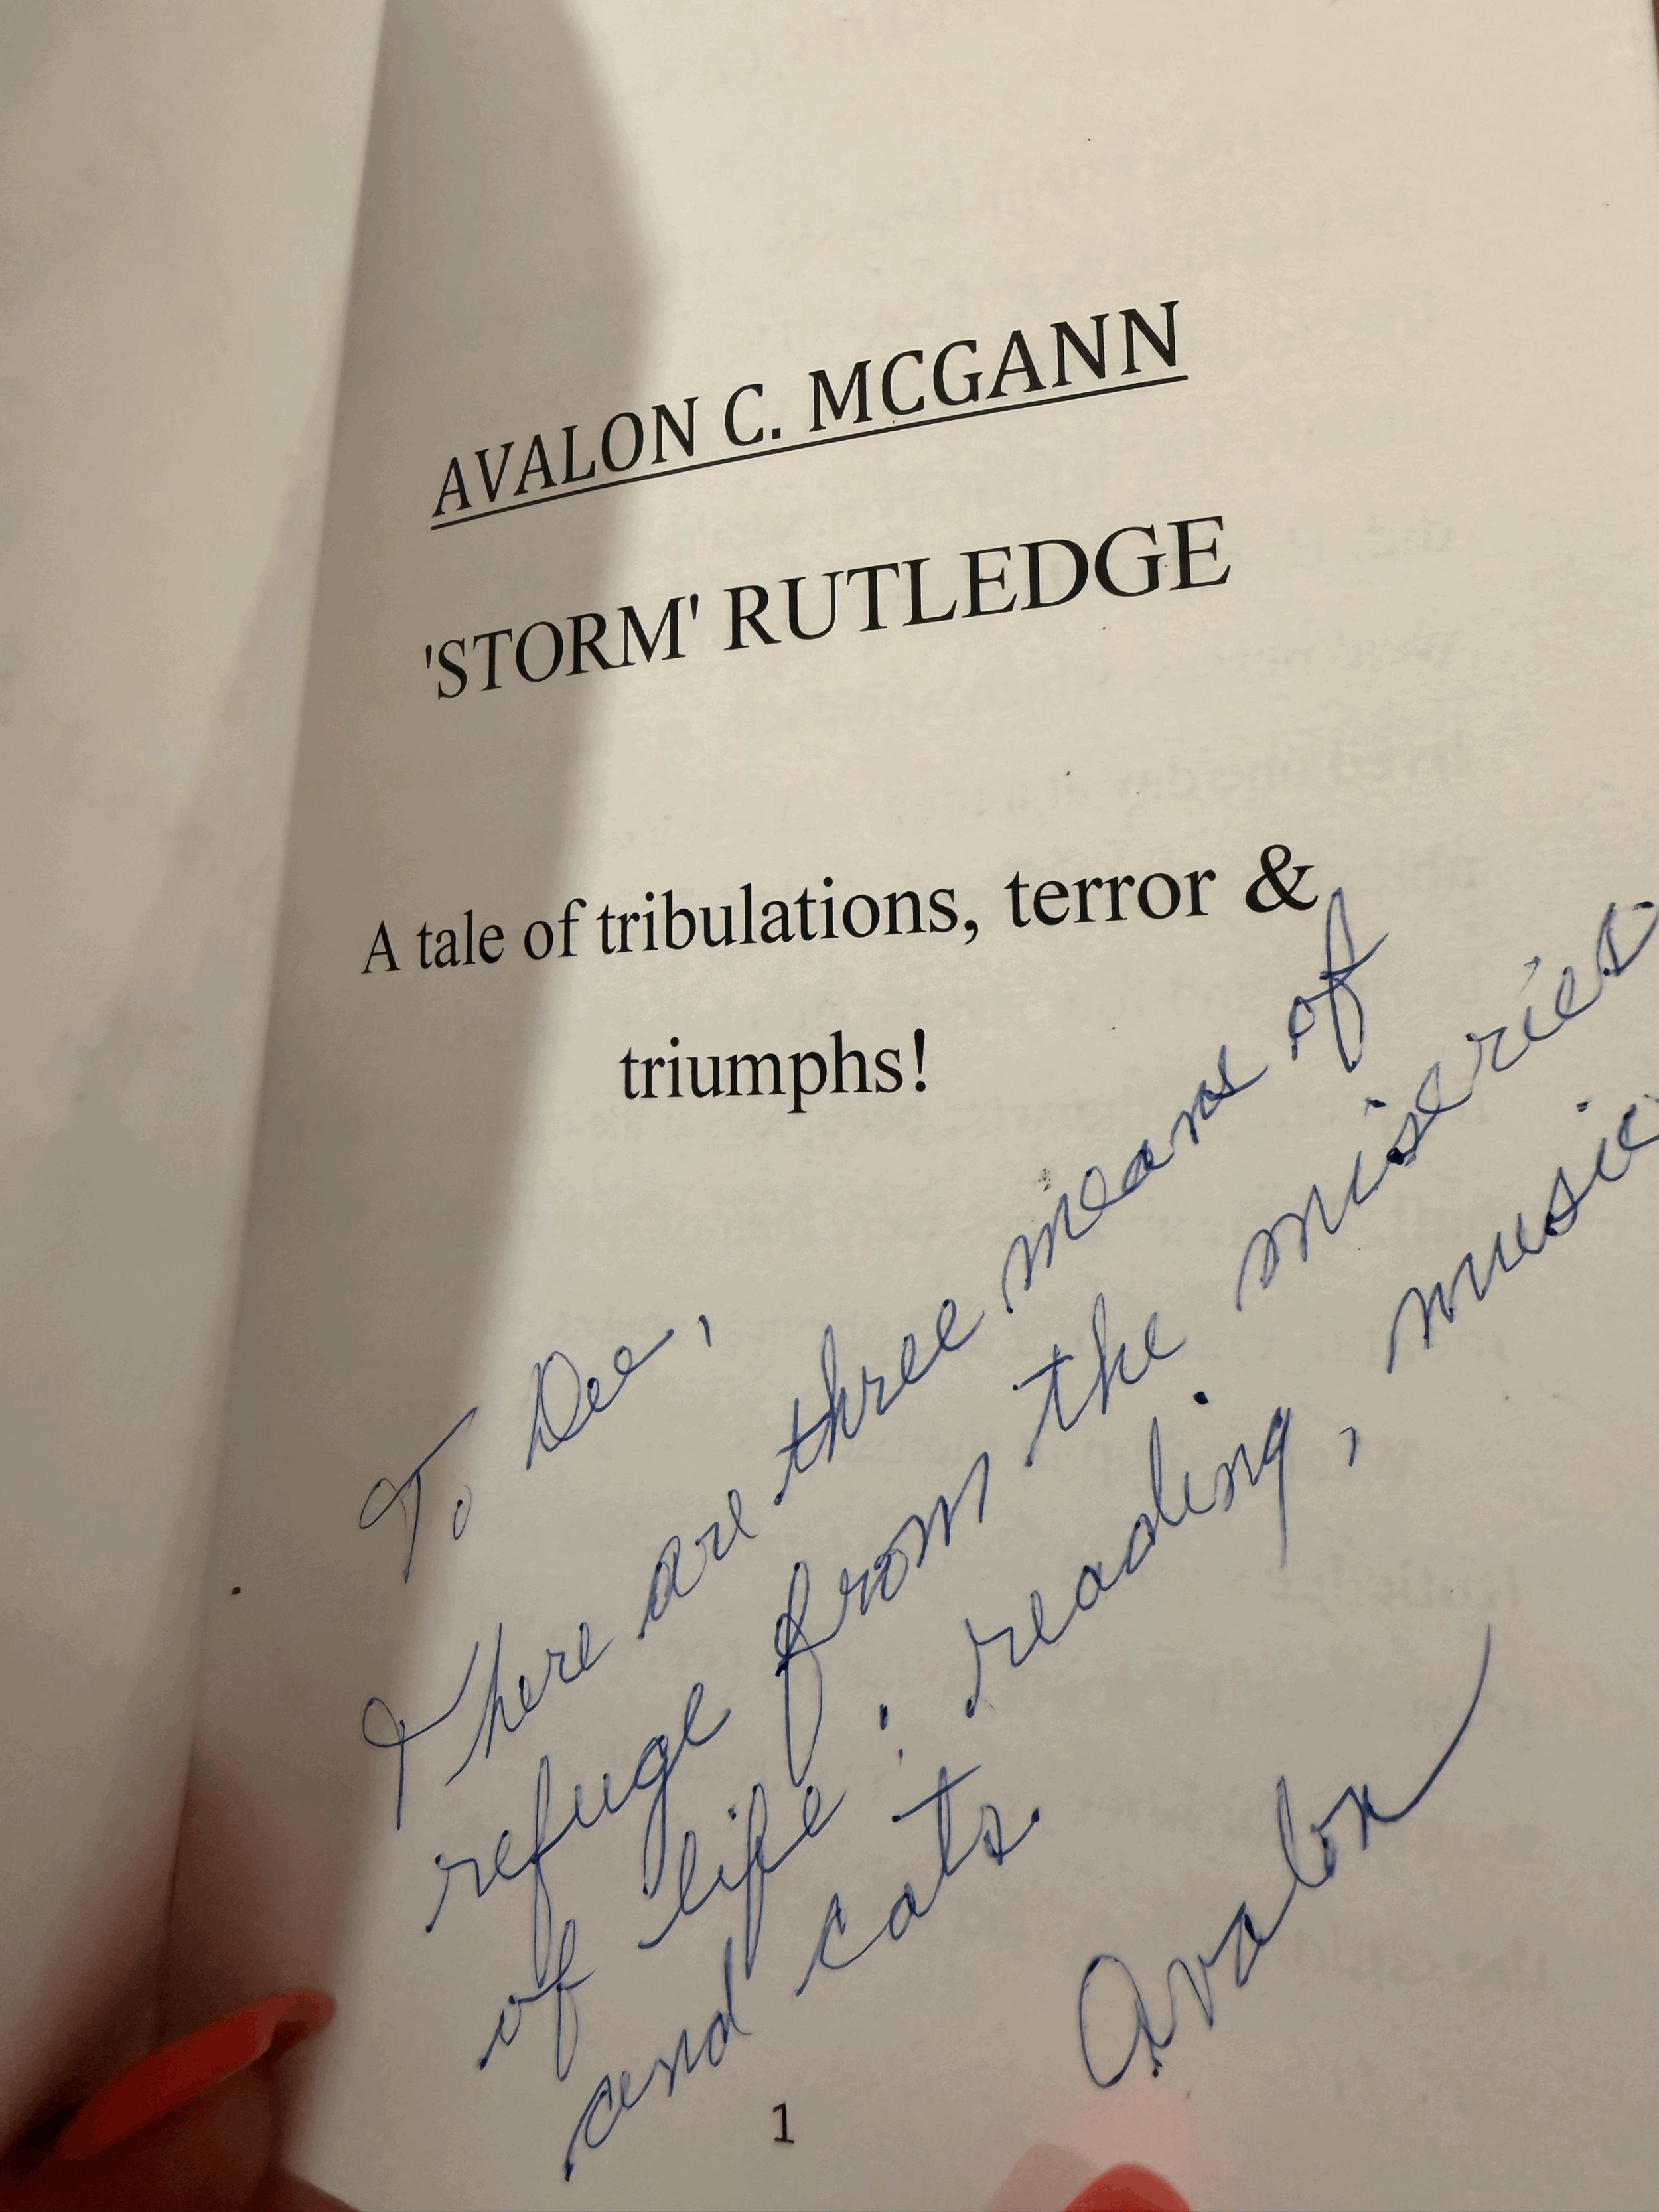 AVALON C. MCGANN
'STORM' RUTLEDGE
A tale of tribulations, terror &
triumphs!
To Dee,
There are three means of
refuge from the miseries
of life: reading, music
and cats.
Avalon
1